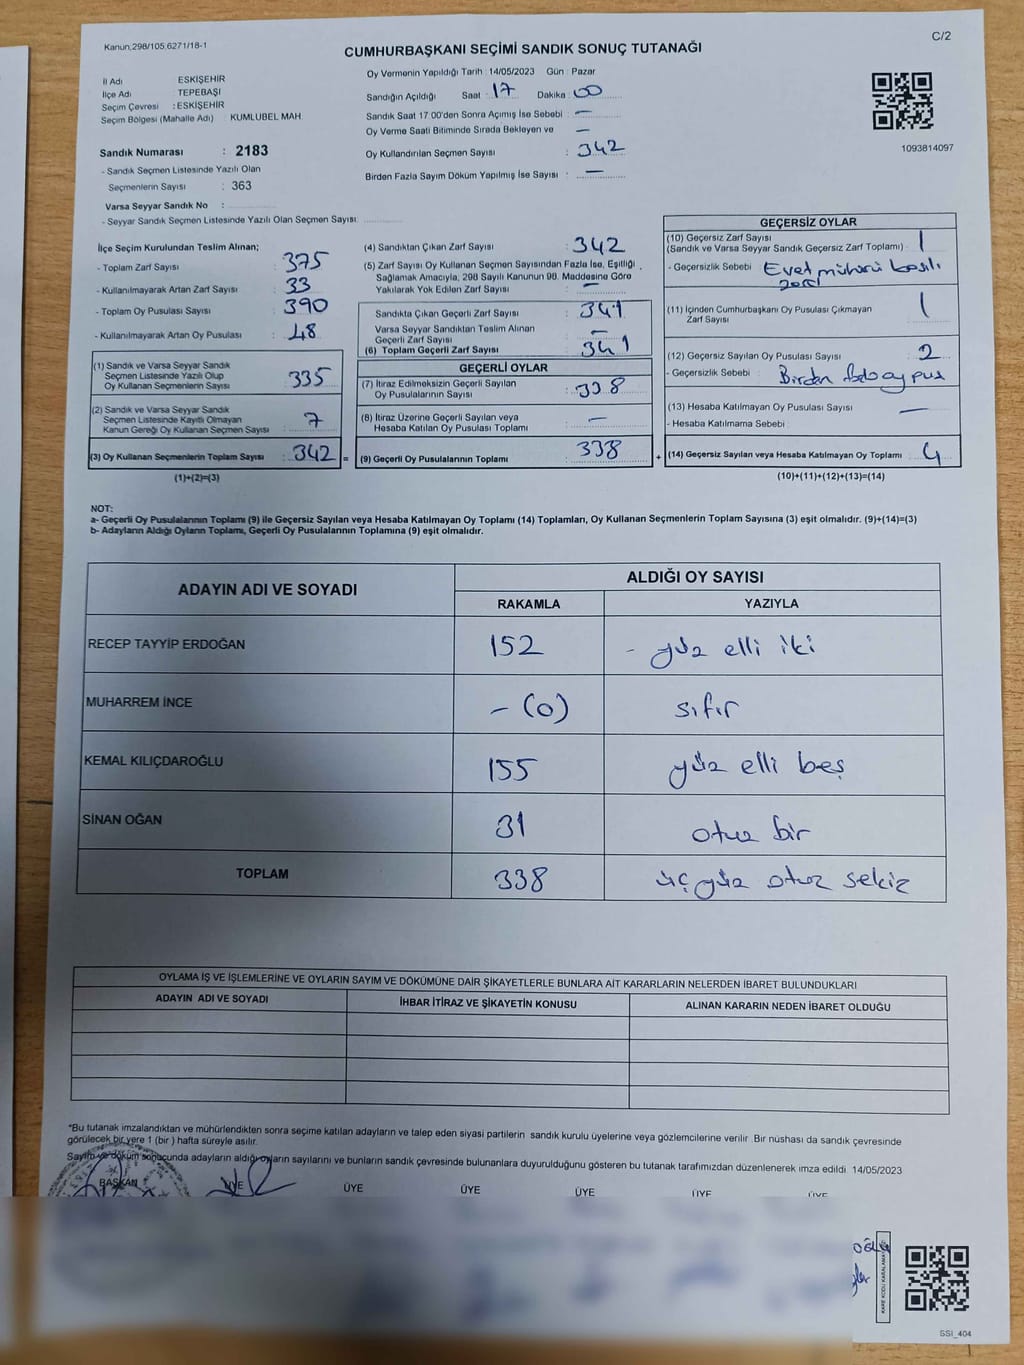 Kanun;298/105,6271/18-1
C/2
CUMHURBAŞKANI SEÇİMİ SANDIK SONUÇ TUTANAĞI
İl Adı ESKİŞEHİR
İlçe Adı TEPEBAŞI
Seçim Çevresi : ESKİŞEHİR
Seçim Bölgesi (Mahalle Adı) KUMLUBEL MAH.
Oy Vermenin Yapıldığı Tarih : 14/05/2023 Gün : Pazar
Sandığın Açıldığı Saat : 17 Dakika : 00
Sandık Saat 17.00'den Sonra Açımış İse Sebebi : —
Oy Verme Saati Bitiminde Sırada Bekleyen ve —
Oy Kullandırılan Seçmen Sayısı : 342
Birden Fazla Sayım Döküm Yapılmış İse Sayısı : —
1093814097
Sandık Numarası : 2183
- Sandık Seçmen Listesinde Yazılı Olan
Seçmenlerin Sayısı : 363
Varsa Seyyar Sandık No :
- Seyyar Sandık Seçmen Listesinde Yazılı Olan Seçmen Sayısı:
İlçe Seçim Kurulundan Teslim Alınan;
- Toplam Zarf Sayısı : 375
- Kullanılmayarak Artan Zarf Sayısı : 33
- Toplam Oy Pusulası Sayısı : 390
- Kullanılmayarak Artan Oy Pusulası : 48
(1) Sandık ve Varsa Seyyar Sandık
Seçmen Listesinde Yazılı Olup
Oy Kullanan Seçmenlerin Sayısı : 335
(2) Sandık ve Varsa Seyyar Sandık
Seçmen Listesinde Kayıtlı Olmayan
Kanun Gereği Oy Kullanan Seçmen Sayısı : 7
(3) Oy Kullanan Seçmenlerin Toplam Sayısı : 342 =
(1)+(2)=(3)
(4) Sandıktan Çıkan Zarf Sayısı : 342
(5) Zarf Sayısı Oy Kullanan Seçmen Sayısından Fazla İse, Eşitliği
Sağlamak Amacıyla, 298 Sayılı Kanunun 98. Maddesine Göre
Yakılarak Yok Edilen Zarf Sayısı : —
Sandıkta Çıkan Geçerli Zarf Sayısı : 341
Varsa Seyyar Sandıktan Teslim Alınan
Geçerli Zarf Sayısı : —
(6) Toplam Geçerli Zarf Sayısı : 341
GEÇERLİ OYLAR
(7) İtiraz Edilmeksizin Geçerli Sayılan
Oy Pusulalarının Sayısı : 338
(8) İtiraz Üzerine Geçerli Sayılan veya
Hesaba Katılan Oy Pusulası Toplamı : —
(9) Geçerli Oy Pusulalarının Toplamı : 338 +
GEÇERSİZ OYLAR
(10) Geçersiz Zarf Sayısı
(Sandık ve Varsa Seyyar Sandık Geçersiz Zarf Toplamı) : 1
- Geçersizlik Sebebi : Evet mühürü basılı
zarf
(11) İçinden Cumhurbaşkanı Oy Pusulası Çıkmayan
Zarf Sayısı : 1
(12) Geçersiz Sayılan Oy Pusulası Sayısı : 2
- Geçersizlik Sebebi : Birden
(13) Hesaba Katılmayan Oy Pusulası Sayısı : —
- Hesaba Katılmama Sebebi :
(14) Geçersiz Sayılan veya Hesaba Katılmayan Oy Toplamı : 4
(10)+(11)+(12)+(13)=(14)
NOT:
a- Geçerli Oy Pusulalarının Toplamı (9) ile Geçersiz Sayılan veya Hesaba Katılmayan Oy Toplamı (14) Toplamları, Oy Kullanan Seçmenlerin Toplam Sayısına (3) eşit olmalıdır. (9)+(14)=(3)
b- Adayların Aldığı Oyların Toplamı, Geçerli Oy Pusulalarının Toplamına (9) eşit olmalıdır.
ADAYIN ADI VE SOYADI
ALDIĞI OY SAYISI
RAKAMLA YAZIYLA
RECEP TAYYİP ERDOĞAN 152 - yüz elli iki
MUHARREM İNCE - (0) sıfır
KEMAL KILIÇDAROĞLU 155 yüz elli beş
SİNAN OĞAN 31 otuz bir
TOPLAM 338 üç yüz otuz sekiz
OYLAMA İŞ VE İŞLEMLERİNE VE OYLARIN SAYIM VE DÖKÜMÜNE DAİR ŞİKAYETLERLE BUNLARA AİT KARARLARIN NELERDEN İBARET BULUNDUKLARI
ADAYIN ADI VE SOYADI İHBAR İTİRAZ VE ŞİKAYETİN KONUSU ALINAN KARARIN NEDEN İBARET OLDUĞU
*Bu tutanak imzalandıktan ve mühürlendikten sonra seçime katılan adayların ve talep eden siyasi partilerin sandık kurulu üyelerine veya gözlemcilerine verilir. Bir nüshası da sandık çevresinde
görülecek bir yere 1 (bir ) hafta süreyle asılır.
Sayım ve döküm sonucunda adayların aldığı oyların sayılarını ve bunların sandık çevresinde bulunanlara duyurulduğunu gösteren bu tutanak tarafımızdan düzenlenerek imza edildi. 14/05/2023
BAŞKAN ÜYE ÜYE ÜYE ÜYE ÜYE ÜYE
KARE KODU KARALAMAYINIZ
SSI_404